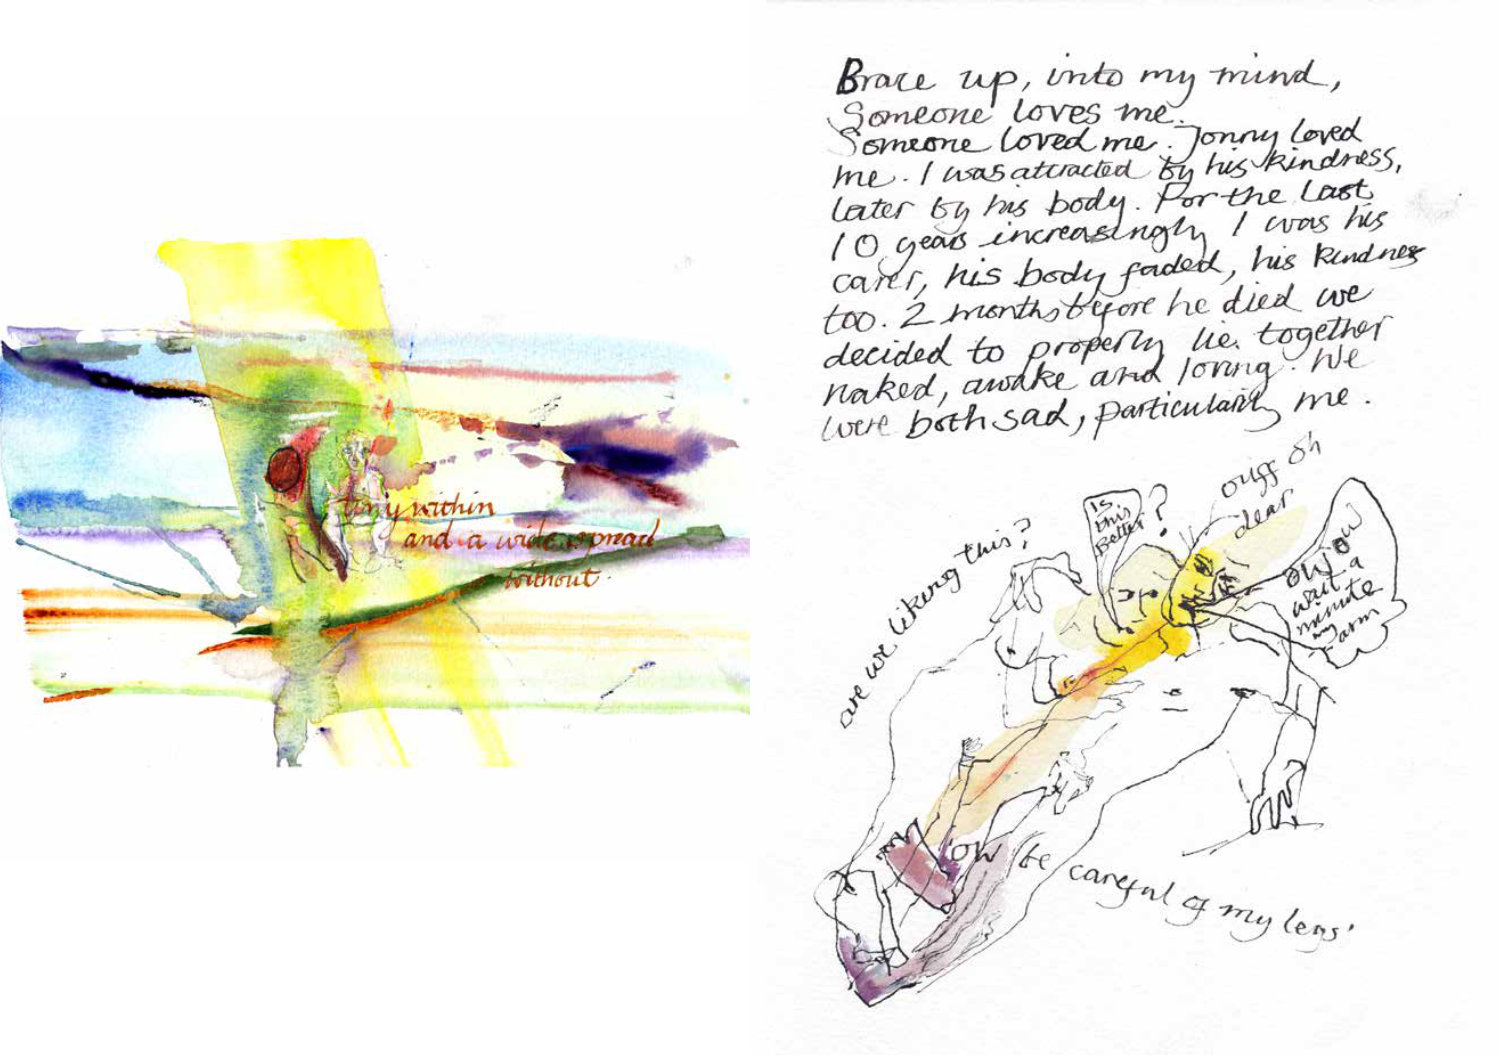 tiny within
and a wide spread
without.
Brace up, into my mind,
Someone loves me.
Someone loved me. Jonny loved
me. I was attracted by his kindness,
later by his body. For the last
10 years increasingly I was his
carer, his body faded, his kindness
too. 2 months before he died we
decided to properly lie together
naked, awake and loving. We
were both sad, particularly me.
are we liking this?
Is
this
Better?
ouff oh
dear
ow ow
wait a
minute
my
arm
ow be careful of my legs'